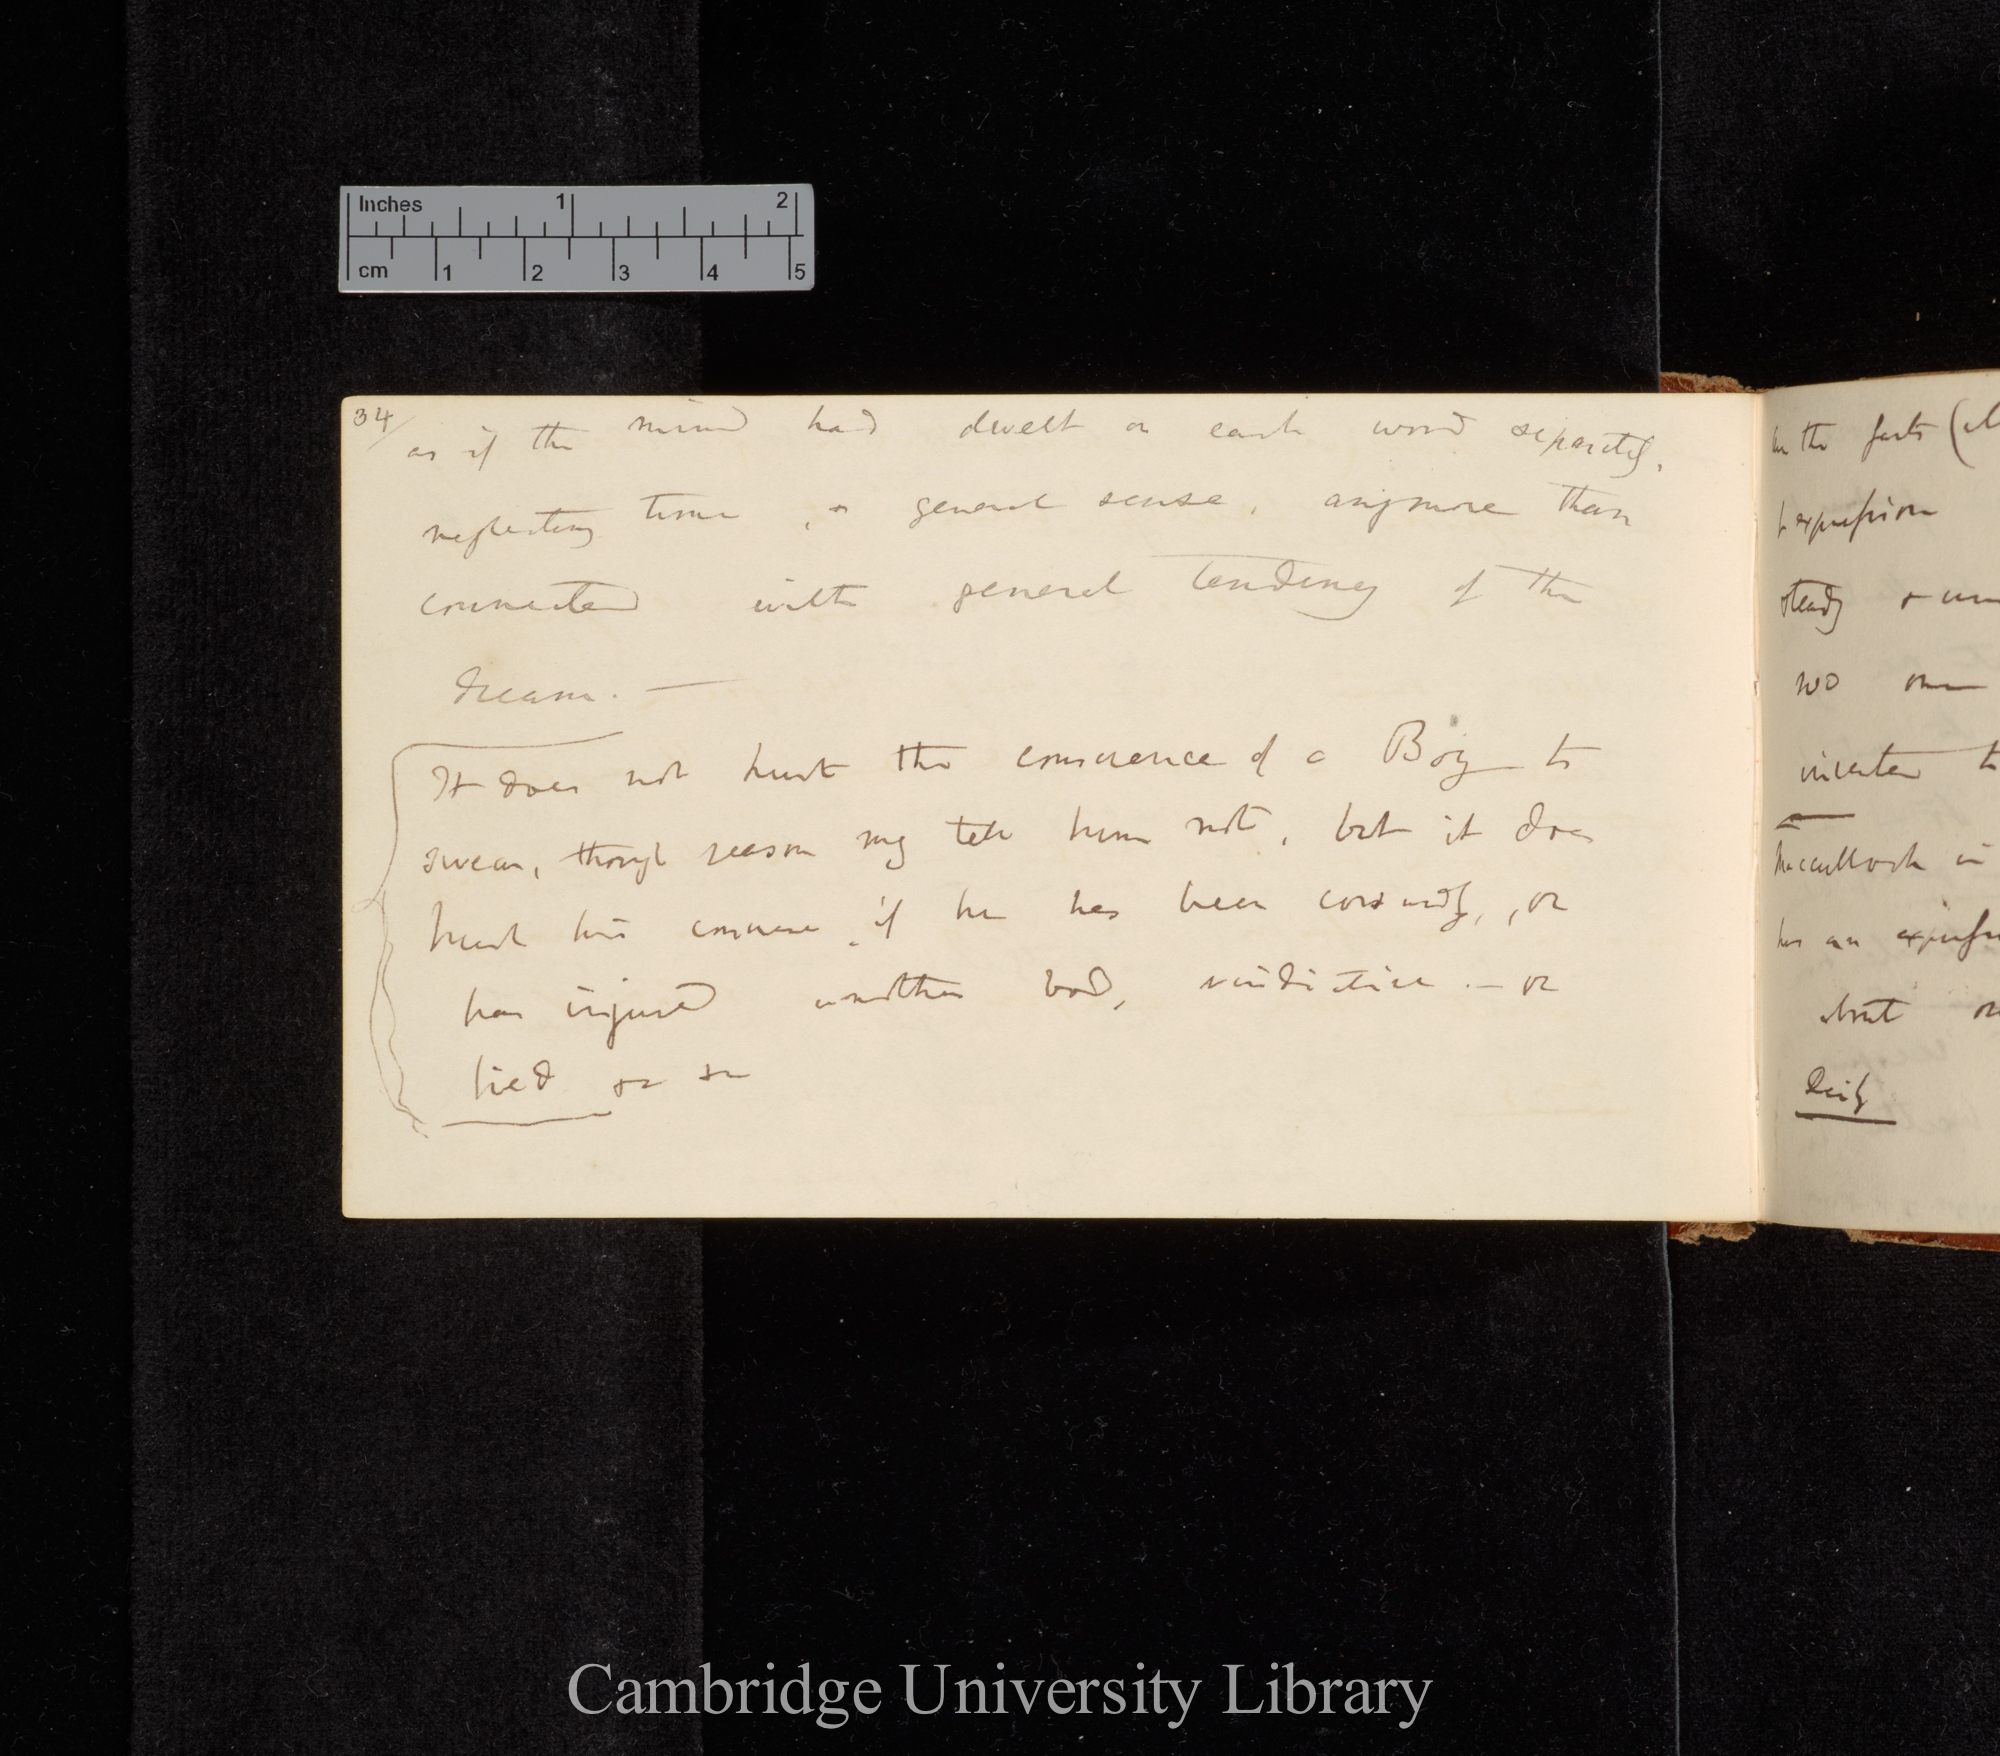 Inches 1 2
cm 1 2 3 4 5
34/
as if the mind had dwelt on each word separately,
neglecting time, & general sense, anymore than
connected with general tendency of the
dream. —
It does not hurt the conscience of a Boy to
swear, though reason may tell him not, but it does
hurt his conscience, if he has been cowardly, or
has injured another bad, vindictive. — or
lied &c &c
the facts (
expression
steady &
no one
invented
Macculloch in
has an
about
Deity
Cambridge University Library